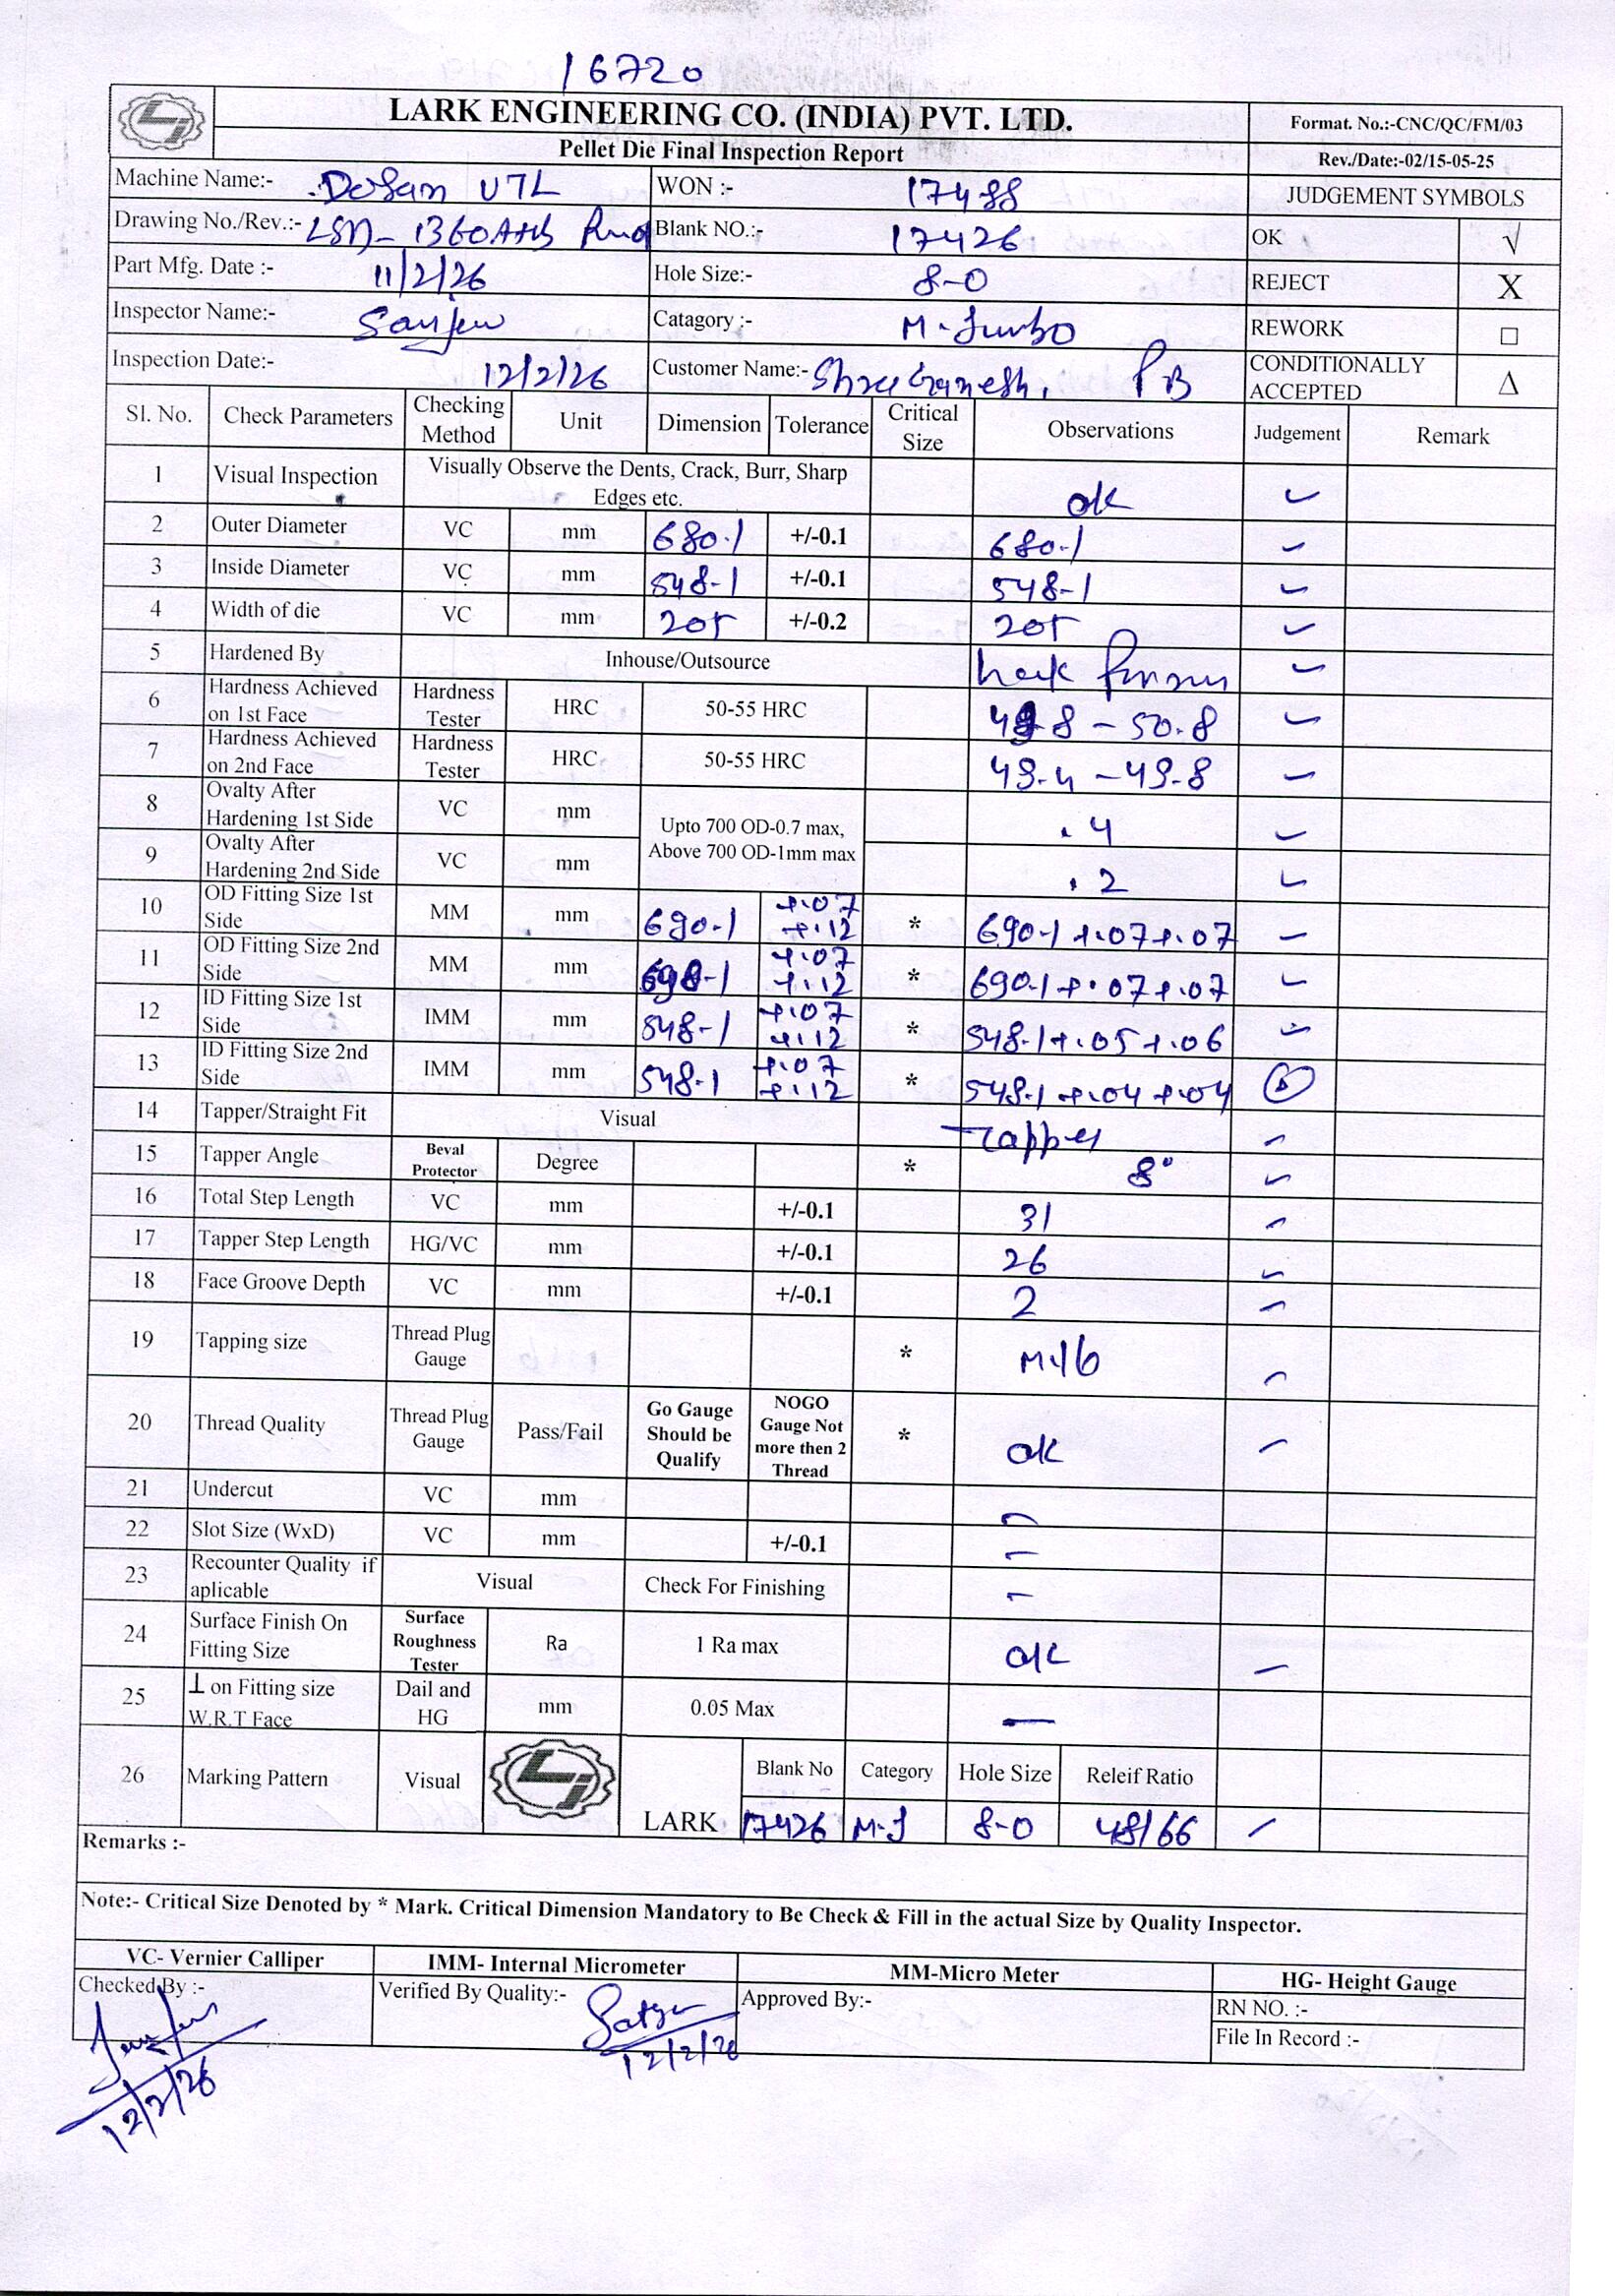 16720
LARK ENGINEERING CO. (INDIA) PVT. LTD.
Format. No.:-CNC/QC/FM/03
Pellet Die Final Inspection Report
Rev./Date:-02/15-05-25
Machine Name:- Dosan VTL WON :- 17488 JUDGEMENT SYMBOLS
Drawing No./Rev.:- LSD- 1360 Blank NO.:- 17426 OK √
Part Mfg. Date :- 11/2/26 Hole Size:- 8-0 REJECT X
Inspector Name:- Sanjeev Catagory :- M-Jumbo REWORK □
Inspection Date:- 12/2/26 Customer Name:- Shree Ganesh, PB CONDITIONALLY ACCEPTED Δ
Sl. No. Check Parameters Checking Method Unit Dimension Tolerance Critical Size Observations Judgement Remark
1 Visual Inspection Visually Observe the Dents, Crack, Burr, Sharp Edges etc. ok ✓
2 Outer Diameter VC mm 680.1 +/-0.1 680.1 ✓
3 Inside Diameter VC mm 548-1 +/-0.1 548-1 ✓
4 Width of die VC mm 205 +/-0.2 205 ✓
5 Hardened By Inhouse/Outsource ✓
6 Hardness Achieved on 1st Face Hardness Tester HRC 50-55 HRC 49.8 - 50.8 ✓
7 Hardness Achieved on 2nd Face Hardness Tester HRC 50-55 HRC 49.4 - 49.8 ✓
8 Ovalty After Hardening 1st Side VC mm Upto 700 OD-0.7 max, Above 700 OD-1mm max .4 ✓
9 Ovalty After Hardening 2nd Side VC mm .2 ✓
10 OD Fitting Size 1st Side MM mm 690-1 +.07 +.12 * 690-1 +.07 +.07 ✓
11 OD Fitting Size 2nd Side MM mm 690-1 +.07 +.12 * 690-1 +.07 +.07 ✓
12 ID Fitting Size 1st Side IMM mm 548-1 +.07 +.12 * 548-1 +.05 +.06 ✓
13 ID Fitting Size 2nd Side IMM mm 548-1 +.07 +.12 * 548-1 +.04 +.04
14 Tapper/Straight Fit Visual Tapper ✓
15 Tapper Angle Beval Protector Degree * 8° ✓
16 Total Step Length VC mm +/-0.1 31 ✓
17 Tapper Step Length HG/VC mm +/-0.1 26 ✓
18 Face Groove Depth VC mm +/-0.1 2 ✓
19 Tapping size Thread Plug Gauge * M-16 ✓
20 Thread Quality Thread Plug Gauge Pass/Fail Go Gauge Should be Qualify NOGO Gauge Not more then 2 Thread * ok ✓
21 Undercut VC mm -
22 Slot Size (WxD) VC mm +/-0.1 -
23 Recounter Quality if aplicable Visual Check For Finishing -
24 Surface Finish On Fitting Size Surface Roughness Tester Ra 1 Ra max ok ✓
25 ⊥ on Fitting size W.R.T Face Dail and HG mm 0.05 Max -
26 Marking Pattern Visual LARK Blank No Category Hole Size Releif Ratio
17426 M-J 8-0 48/66 ✓
Remarks :-
Note:- Critical Size Denoted by * Mark. Critical Dimension Mandatory to Be Check & Fill in the actual Size by Quality Inspector.
VC- Vernier Calliper IMM- Internal Micrometer MM-Micro Meter HG- Height Gauge
Checked By :- Verified By Quality:- Approved By:- RN NO. :-
File In Record :-
12/2/26
12/2/26